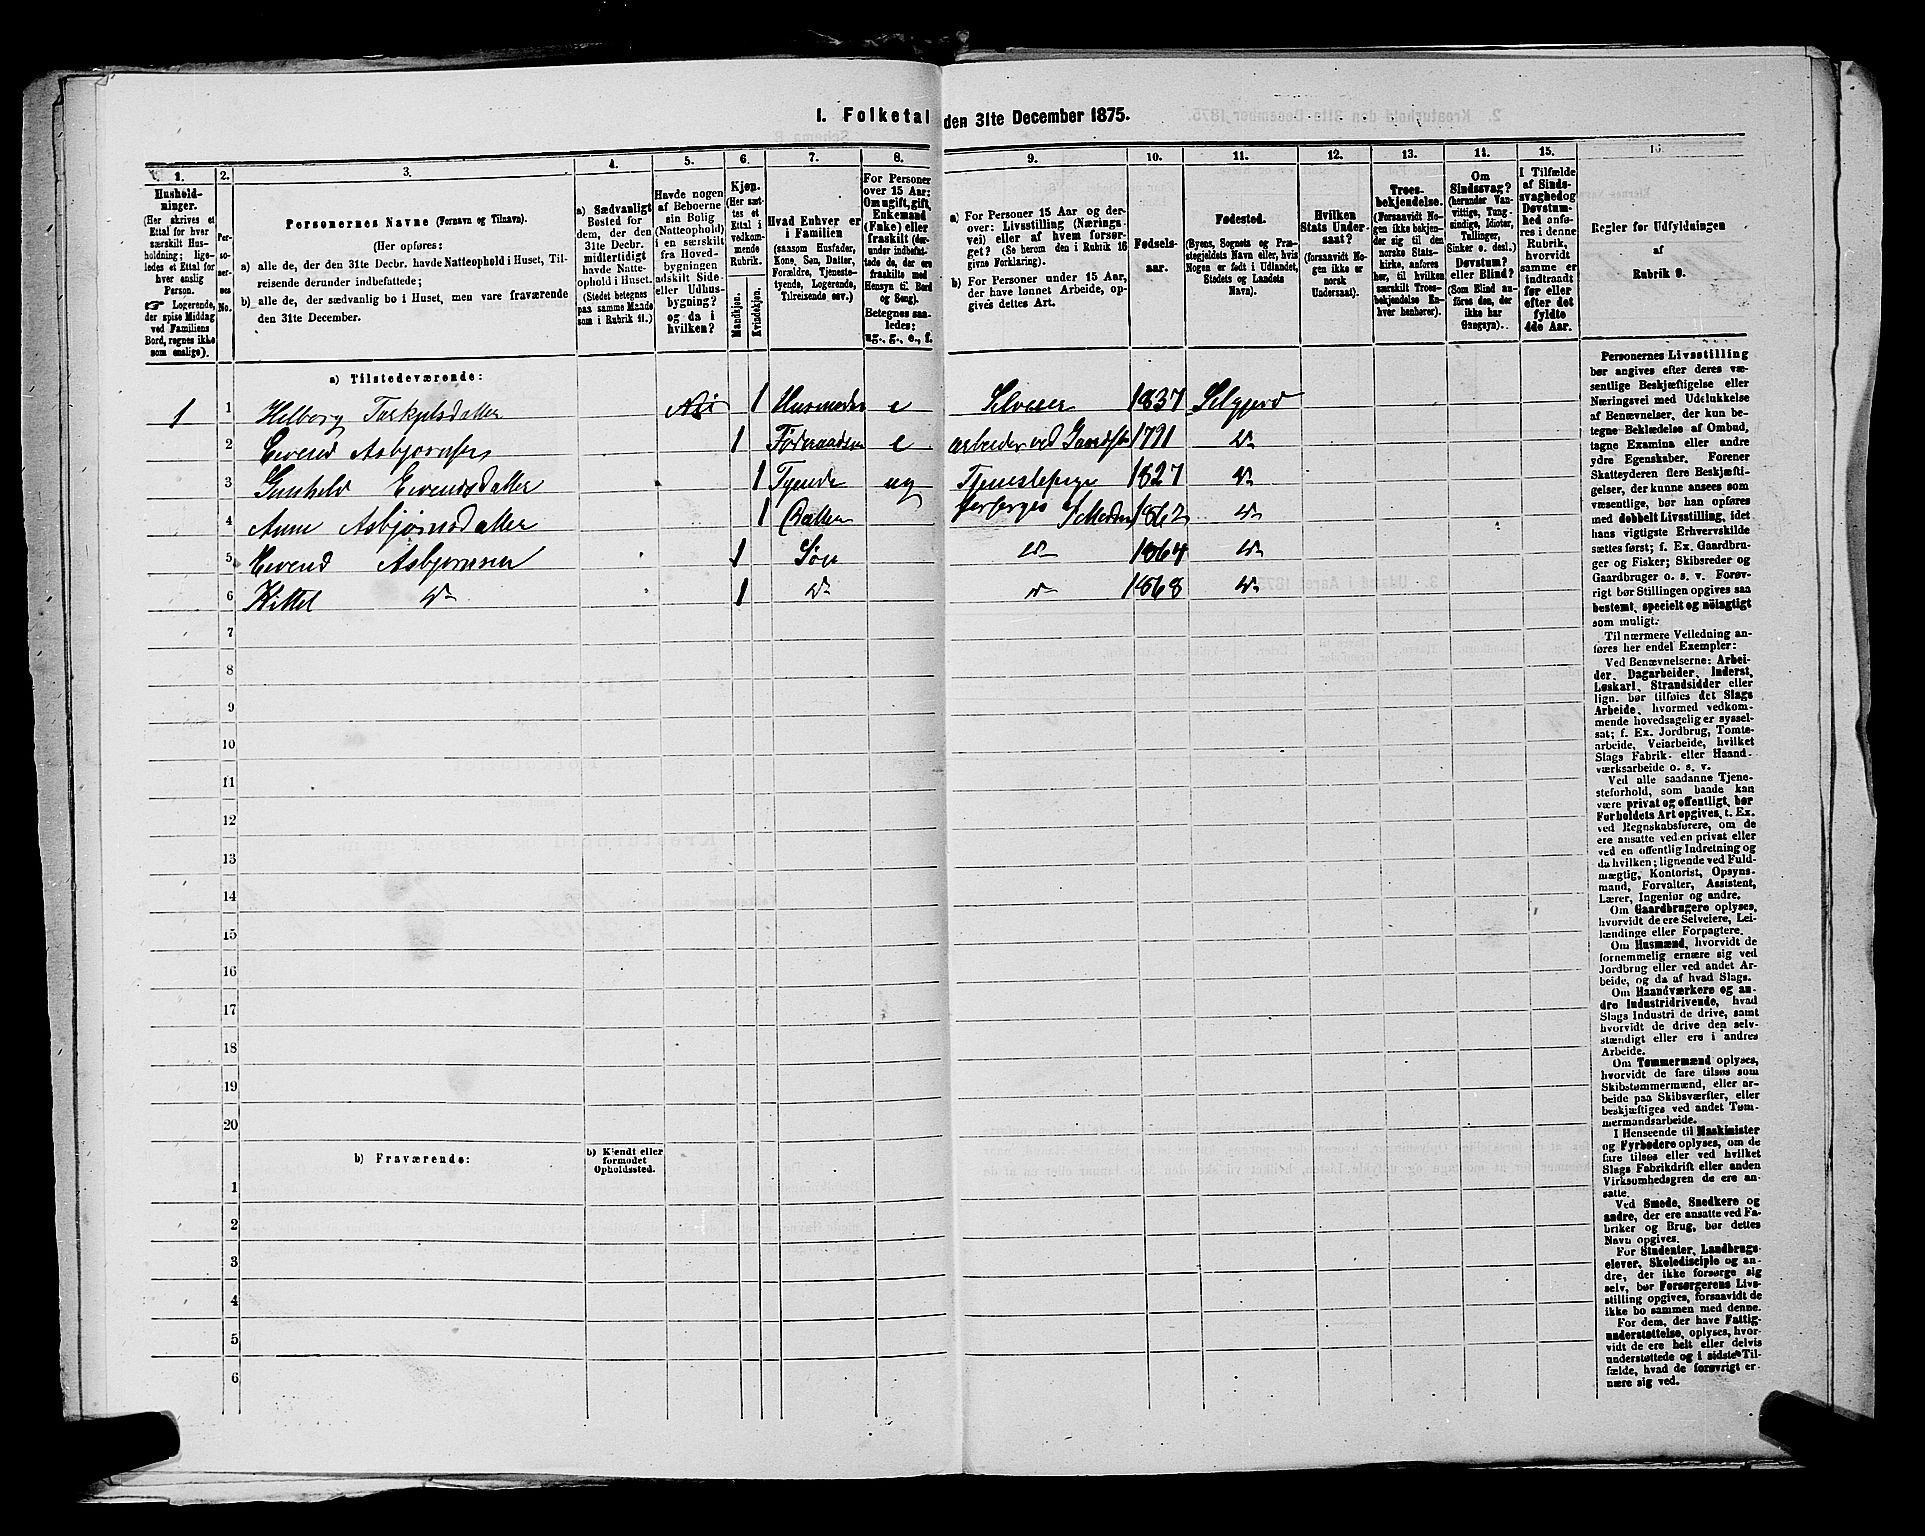 1. Folketal den 31te December 1875.
1.
Hushold-
ninger.
(Her skrives et
Ettal for hver
særskilt Hus-
holdning; lige-
ledes et Ettal for
hver enslig
Person.
☞ Logerende,
der spise Middag
ved Familiens
Bord, regnes ikke
som enslige).
2.
Per-
so-
ner-
nes
No.
3.
Personernes Navne (Fornavn og Tilnavn).
(Her opføres:
a) alle de, der den 31te Decbr. havde Natteophold i Huset, Til-
reisende derunder indbefattede;
b) alle de, der sædvanlig bo i Huset, men vare fraværende
den 31te December.
4.
a) Sædvanligt
Bosted for
dem, der den
31te Decbr.
midlertidigt
havde Natte-
ophold i Huset.
(Stedet betegnes
paa samme Maade
som i Rubrik 11.)
5.
Havde nogen
af Beboerne
sin Bolig
(Natteophold)
i en særskilt
fra Hoved-
bygningen
adskilt Side-
eller Udhus-
bygning?
og da i
hvilken?
6.
Kjøn.
(Her sæt-
tes et
Ettal i
vedkom-
mende
Rubrik.
Mandkjøn.
Kvindekjøn.
7.
Hvad Enhver er
i Familien
(saasom Husfader,
Kone, Søn, Datter,
Forældre, Tjeneste-
tyende, Logerende,
Tilreisende osv.)
8.
For Personer
over 15 Aar:
Om ugift, gift,
Enkemand
(Enke) eller
fraskilt (der-
under indbefat-
tede de, der ere
fraskilte med
Hensyn til Bord
og Seng).
Betegnes saa-
ledes:
ug., g., e., f.
9.
a) For Personer 15 Aar og der-
over: Livsstilling (Nærings-
vei) eller af hvem forsør-
get? (Se herom den i Rubrik 16
givne Forklaring).
b) For Personer under 15 Aar,
der have lønnet Arbeide, op-
gives dettes Art.
10.
Fødsels-
aar.
11.
Fødested.
(Byens, Sognets og Præ-
stegjeldets Navn eller, hvis
Nogen er født i Udlandet,
Stedets og Landets
Navn).
12.
Hvilken
Stats Under-
saat?
(forsaavidt No-
gen ikke er
norsk
Undersaat).
13.
Troes-
bekjendelse.
(Forsaavidt No-
gen ikke bekjen-
der sig til den
norske Stats-
kirke, anføres
her, til hvilken
særskilt Troes-
bekjendelse En-
hver henhører).
14.
Om
Sindssvag?
(herunder Van-
vittige, Tung-
sindige, Idioter,
Tullinger,
Sinker o. desl.).
Døvstum?
eller Blind?
(Som Blind an-
føres den, der
ikke har
Gangsyn).
15.
I Tilfælde
af Sinds-
svaghed og
Døvstum-
hed anfø-
res i denne
Rubrik,
hvorvidt
samme er
indtraadt
før eller
efter det
fyldte
4de Aar.
16.
Regler før Udfyldningen
af
Rubrik 9.
a) Tilstedeværende:
1 1 Helborg Tarkjelsdatter Nei 1 Husmoder e Selveier 1837 Selgjord
2 Eivend Asbjørnsen 1 Føderaadsm e arbeider ved 1791 do
3 Gunhild Eivendsdatter 1 Tyende ug Tjenestepige 1827 do
4 Anne Asbjørnsdatter 1 Datter forsørges 1862 do
5 Eivend Asbjørnsen 1 Søn do 1864 do
6 Kittel do 1 do do 1868 do
7
8
9
10
11
12
13
14
15
16
17
18
19
20
b) Fraværende:
b) Kjendt eller
formodet
Opholdssted.
1
2
3
4
5
6
Personernes Livsstilling
bør angives efter deres væ-
sentlige Beskjæftigelse eller
Næringsvei med Udelukkelse
af Benævnelser, der kun be-
tegne Beklædelse af Ombud,
tagne Examina eller andre
ydre Egenskaber. Forener
Skatteyderen flere Beskjæfti-
gelser, der kunne ansees som
væsentlige, bør han opføres
med dobbelt Livsstilling, idet
hans vigtigste Erhvervskilde
sættes først; f. Ex. Gaardbru-
ger og Fisker; Skibsreder og
Gaardbruger o. s. v. Forøv-
rigt bør Stillingen opgives saa
bestemt, specielt og nöiagtigt
som muligt.
Til nærmere Veiledning an-
føres her endel Exempler:
Ved Benævnelserne: Arbei-
der, Dagarbeider, Inderst,
Løskarl, Strandsidder eller
lign. bør tilføies det Slags
Arbeide, hvormed vedkom-
mende hovedsagelig er syssel-
sat; f. Ex. Jordbrug, Tomte-
arbeide, Veiarbeide, hvilket
Slags Fabrik- eller Haand-
værksarbeide o. s. v.
Ved alle saadanne Tjene-
steforhold, som baade kan
være privat og offentligt, bør
Forholdets Art opgives, t. Ex.
ved Regnskabsførere, om de
ere ansatte ved en privat eller
ved en offentlig Indretning og
da hvilken; lignende ved Fuld-
mægtig, Kontorist, Opsyns-
mand, Forvalter, Assistent,
Lærer, Ingeniør og andre.
Om Gaardbrugere oplyses,
hvorvidt de ere Selveiere, Lei-
lændinge eller Forpagtere.
Om Husmænd, hvorvidt de
fornemmelig ernære sig ved
Jordbrug eller ved andet Ar-
beide, og da af hvad Slags.
Om Haandværkere og an-
dre Industridrivende, hvad
Slags Industri de drive, samt
hvorvidt de drive den selv-
stændigt eller ere i andres
Arbeide.
Om Tømmermænd oplyses,
hvorvidt de fare tilsøs som
Skibstømmermænd, eller ar-
beide paa Skibsværfter, eller
beskjæftiges ved andet Tøm-
mermandsarbeide.
I Henseende til Maskinister
og Fyrbødere oplyses, om de
fare tilsøs eller ved hvilket
Slags Fabrikdrift eller anden
Virksomhedsgren de ere an-
satte.
Ved Smede, Snedkere og
andre, der ere ansatte ved Fa-
briker og Brug, bør dettes
Navn opgives.
For Studenter, Landbrugs-
elever, Skoledisciple og an-
dre, der ikke forsørge sig
selv, bør Forsørgerens Livs-
stilling opgives, forsaavidt de
ikke bo sammen med denne.
For dem, der have Fattig-
understøttelse, oplyses, hvor-
vidt de ere helt eller delvis
understøttede og i sidste Til-
fælde, hvad de forøvrigt er-
nære sig ved.